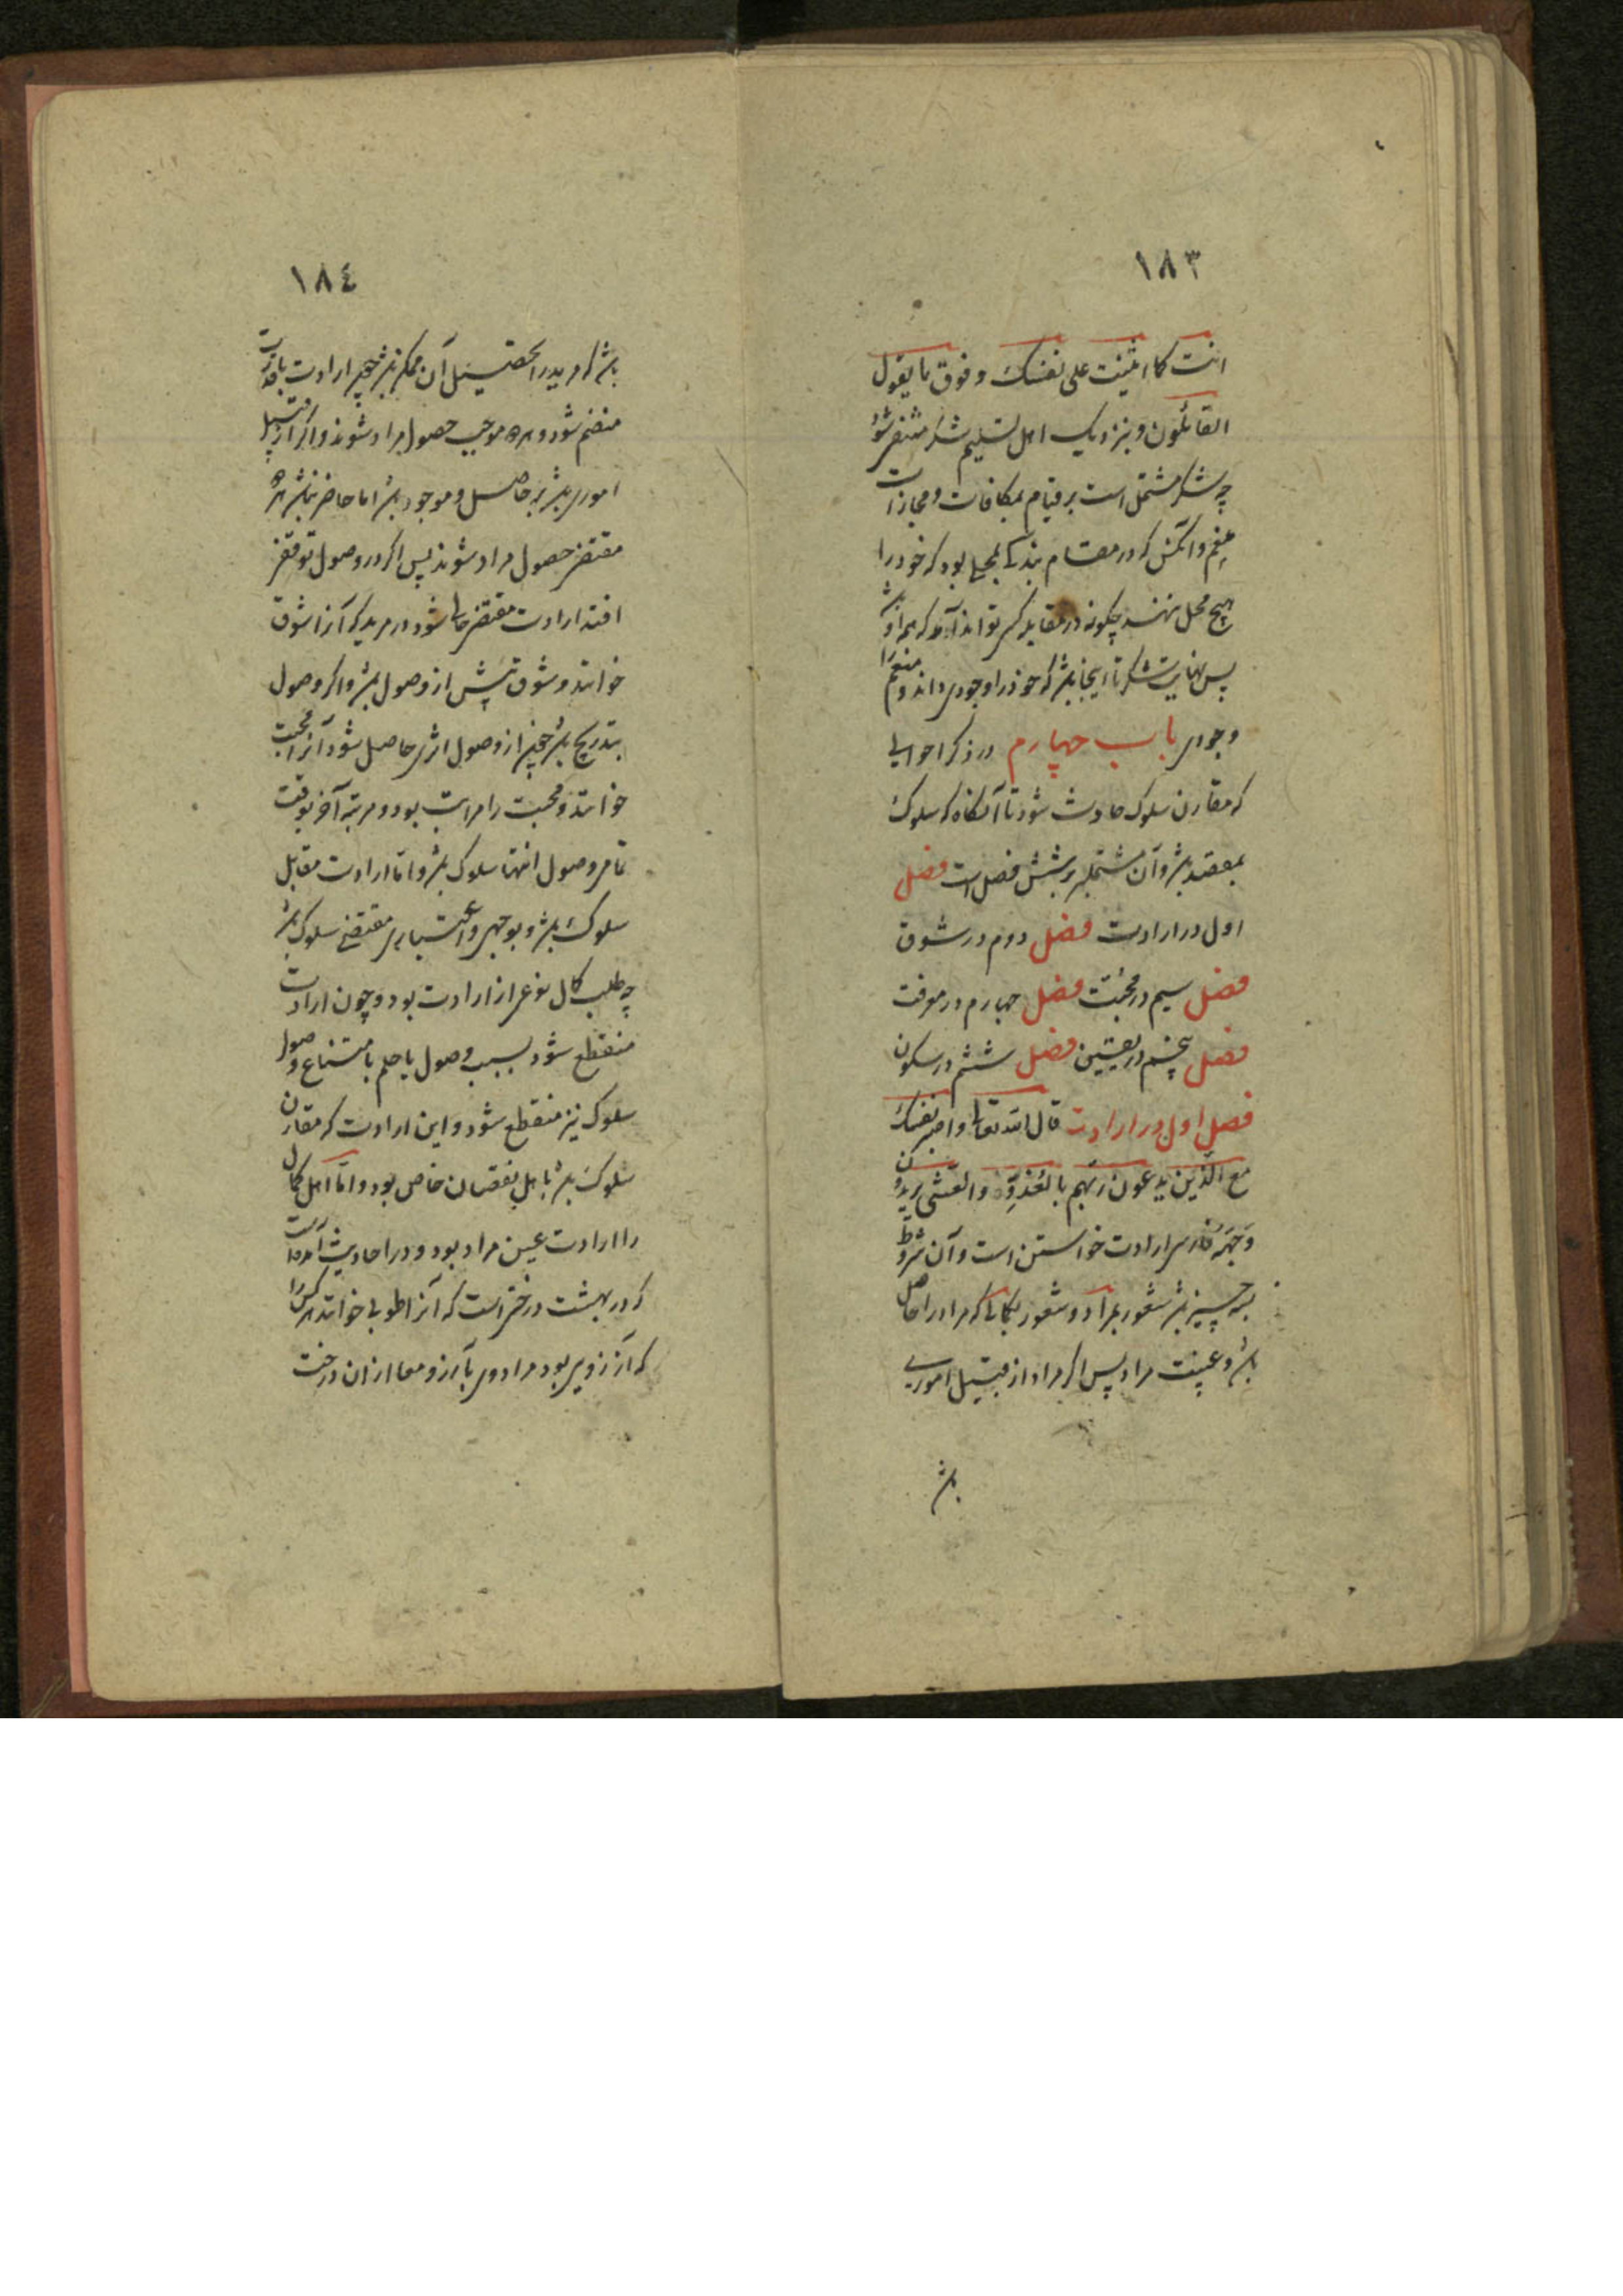 ١٨٣
انت كما اثنيت على نفسك و فوق ما يقول
القائلون و بنزدیک اهل تسلیم شکر منتفی شود
چه شکر مشتمل است بر قیام بمکافات و مجازات
منعم و آنکس که در مقام بندگی بمحلی بود که خود را
هیچ محل ننهد چگونه در مقابل کسی تواند آمد که همه او باشد
پس نهایت شکر تا اینجا باشد که خود را وجودی داند و منعم را
وجودی باب چهارم در ذکر احوالی
که مقارن سلوک حادث شود تا آنگاه که سلوک
بمقصد باشد و آن مشتمل بر شش فصل است فصل
اول در ارادت فصل دوم در شوق
فصل سیم در محبت فصل چهارم در معرفت
فصل پنجم در یقین فصل ششم در سکون
فصل اول در ارادت قال الله تعالی واصبر نفسك
مع الذین یدعون ربهم بالغدوة والعشی یریدون
وجهه فارسی ارادت خواستن است و آن مشروط
بسه چیز باشد شعور بمراد و شعور بکمالی که مراد را حاصل
باشد و غیبت مراد پس اگر مراد از قبیل اموری
باشد
١٨٤
باشد که مرید را تحصیل آن ممکن باشد چون ارادت با قدرت
منضم شود و هر دو موجب حصول مراد شوند و اگر از قبیل
اموری باشد که حاصل و موجود باشد اما حاضر نباشد هر دو
مقتضی حصول مراد شوند پس اگر در وصول توقفی
افتد ارادت مقتضی حالی شود در مرید که آنرا شوق
خوانند و شوق پیش از وصول باشد و اگر وصول
بتدریج باشد چون از وصول اثری حاصل شود آنرا محبت
خوانند و محبت را مراتب بود و مرتبه آخر بوقت
تمامی وصول انتهاء سلوک باشد و اما ارادت مقابل
سلوک باشد و بوجهی و اعتباری مقتضی سلوک باشد
چه طلب کمال نوعی از ارادت بود و چون ارادت
منقطع شود بسبب وصول یا علم بامتناع وصول
سلوک نیز منقطع شود و این ارادت که مقارن
سلوک باشد باهل نقصان خاص بود و اما اهل کمال
را ارادت عین مراد بود و در احادیث آمده است
که در بهشت درختی است که آنرا طوبی خوانند هر کس را
که آرزویی بود مراد وی بآرزو معا از ان درخت